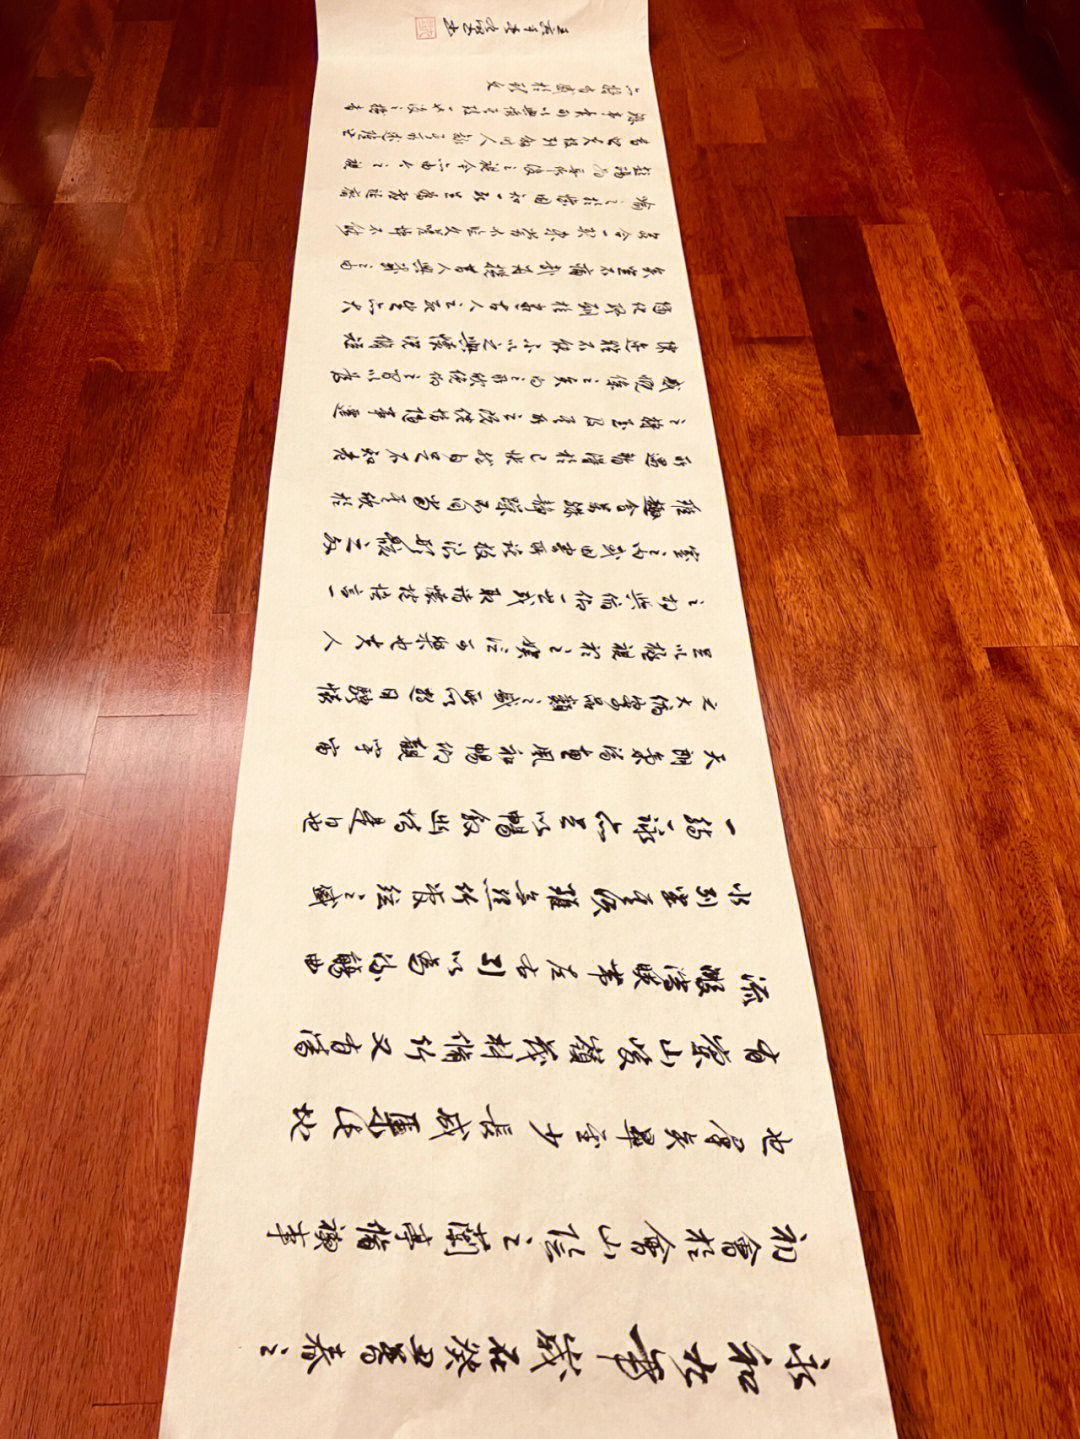 永和九年歲在癸丑暮春之
初會於會山陰之蘭亭脩禊事
也羣賢畢至少長咸集此地
有崇山峻領茂林脩竹又有清
流激湍映帶左右引以為流觴曲
水列坐其次雖無絲竹管絃之盛
一觴一詠亦足以暢敘幽情是日也
天朗氣清惠風和暢仰觀宇宙
之大俯察品類之盛所以遊目騁懷
足以極視聽之娛信可樂也夫人
之相與俯仰一世或取諸懷抱悟言一
室之內或因寄所託放浪形骸之外
雖趣舍萬殊靜躁不同當其欣於
所遇暫得於己快然自足不知老
之將至及其所之既惓情隨事遷
感慨係之矣向之所欣俛仰之間以為
陳迹猶不能不以之興懷況脩短
隨化終期於盡古人云死生亦大
矣豈不痛哉每攬昔人興感之由
若合一契未嘗不臨文嗟悼不能
喻之於懷固知一死生為虛誕齊
彭殤為妄作後之視今亦由今之視
昔悲夫故列敘時人錄其所述雖世
殊事異所以興懷其致一也後之攬者
亦將有感於斯文